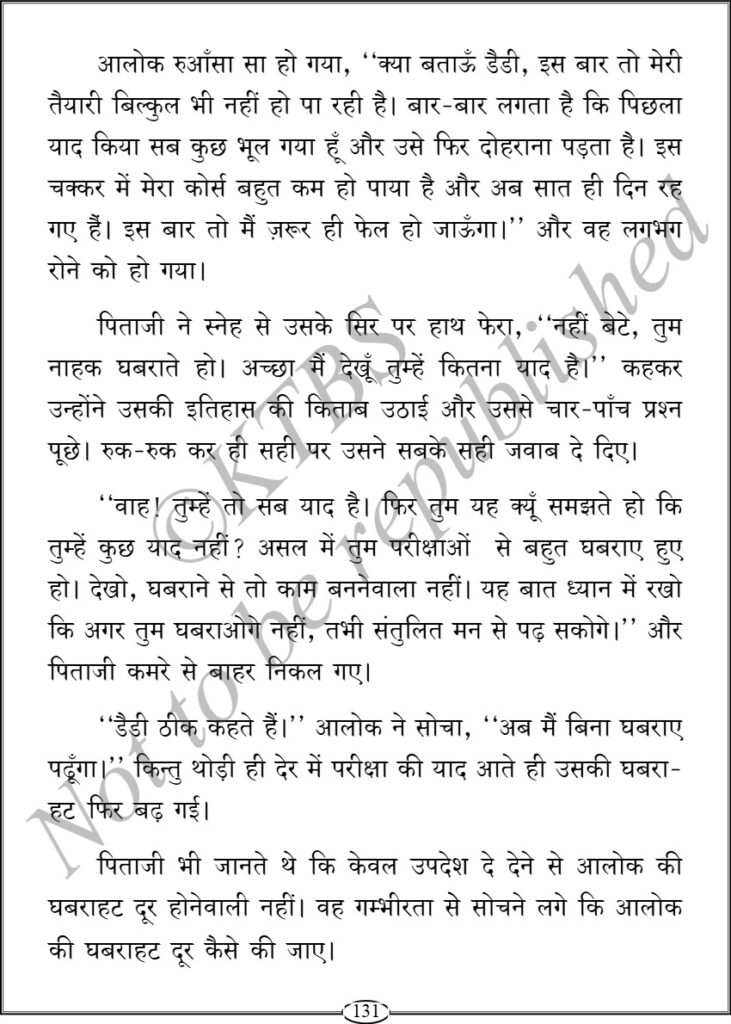 आलोक रुआँसा सा हो गया, ‘‘क्या बताऊँ डैडी, इस बार तो मेरी
तैयारी बिल्कुल भी नहीं हो पा रही है। बार-बार लगता है कि पिछला
याद किया सब कुछ भूल गया हूँ और उसे फिर दोहराना पड़ता है। इस
चक्कर में मेरा कोर्स बहुत कम हो पाया है और अब सात ही दिन रह
गए हैं। इस बार तो मैं ज़रूर ही फेल हो जाऊँगा।’’ और वह लगभग
रोने को हो गया।
पिताजी ने स्नेह से उसके सिर पर हाथ फेरा, ‘‘नहीं बेटे, तुम
नाहक घबराते हो। अच्छा मैं देखूँ तुम्हें कितना याद है।’’ कहकर
उन्होंने उसकी इतिहास की किताब उठाई और उससे चार-पाँच प्रश्न
पूछे। रुक-रुक कर ही सही पर उसने सबके सही जवाब दे दिए।
‘‘वाह! तुम्हें तो सब याद है। फिर तुम यह क्यूँ समझते हो कि
तुम्हें कुछ याद नहीं? असल में तुम परीक्षाओं से बहुत घबराए हुए
हो। देखो, घबराने से तो काम बननेवाला नहीं। यह बात ध्यान में रखो
कि अगर तुम घबराओगे नहीं, तभी संतुलित मन से पढ़ सकोगे।’’ और
पिताजी कमरे से बाहर निकल गए।
‘‘डैडी ठीक कहते हैं।’’ आलोक ने सोचा, ‘‘अब मैं बिना घबराए
पढूँगा।’’ किन्तु थोड़ी ही देर में परीक्षा की याद आते ही उसकी घबरा-
हट फिर बढ़ गई।
पिताजी भी जानते थे कि केवल उपदेश दे देने से आलोक की
घबराहट दूर होनेवाली नहीं। वह गम्भीरता से सोचने लगे कि आलोक
की घबराहट दूर कैसे की जाए।
©KTBS
Not to be republished
131